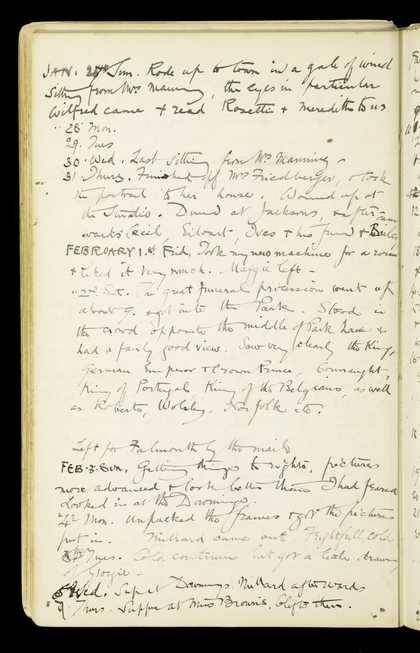 JAN. 27th Sun. Rode up to town in a gale of wind
Sitting from Mrs Manning, the eyes in particular
Wilfred came & read Rosetti & Meredith to us
28 Mon.
29. Tues
30. Wed. Last sitting from Mrs Manning
31 Thurs. Finished off Mrs Friedberger, & took
the portrait to her house. Wound up at
the Studio. Dined at Jacksons, & after came
works Cecil, Ives & his friend &
FEBRUARY 1st Frid. Took my new machine for a
& liked it very much. Maggie left -
2nd Sat. The great funeral procession went up
about 9. got into the Park. Stood in
the crowd opposite the middle of Park Lane &
had a fairly good view. Saw very clearly the King,
German Emperor & Crown Prince, Connaught,
King of Portugal King of the Belgians, as well
as Roberts, Wolsley, Norfolk etc.
Left for Falmouth by the mail
FEB. 3. Sun. Getting things to rights, pictures
more advanced & look better than I had feared
Looked in at the Downings.
4th Mon. Unpacked the frames & got the pictures
put in. came out Frightful cold
Tues. Cold continues but got a little drawing
Georgie -
6 Wed. Sup at Downings after wards
7 Thurs. Supper at Miss Browns, there.